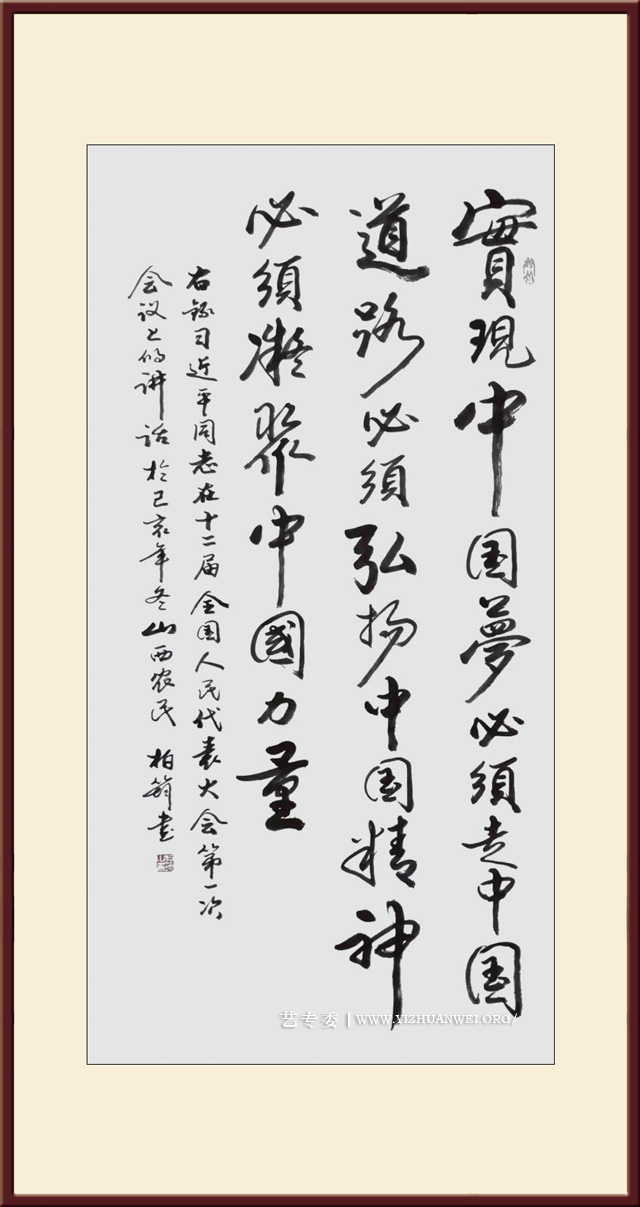 實現中国夢必须走中国
道路必须弘扬中国精神
必须凝聚中國力量
右録习近平同志在十二届全国人民代表大会第一次
会议上的讲话於己亥年冬山西农民 柏筠书
艺专委 | WWW.YIZHUANWEI.ORG/